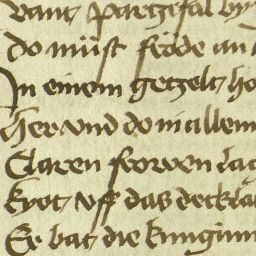 vant partzefal by
do müst fröde an
In einem getzelt ho
Her vnd do in allem
Claren frowen lag
kyot vff das decklac
Er bat die kunginn